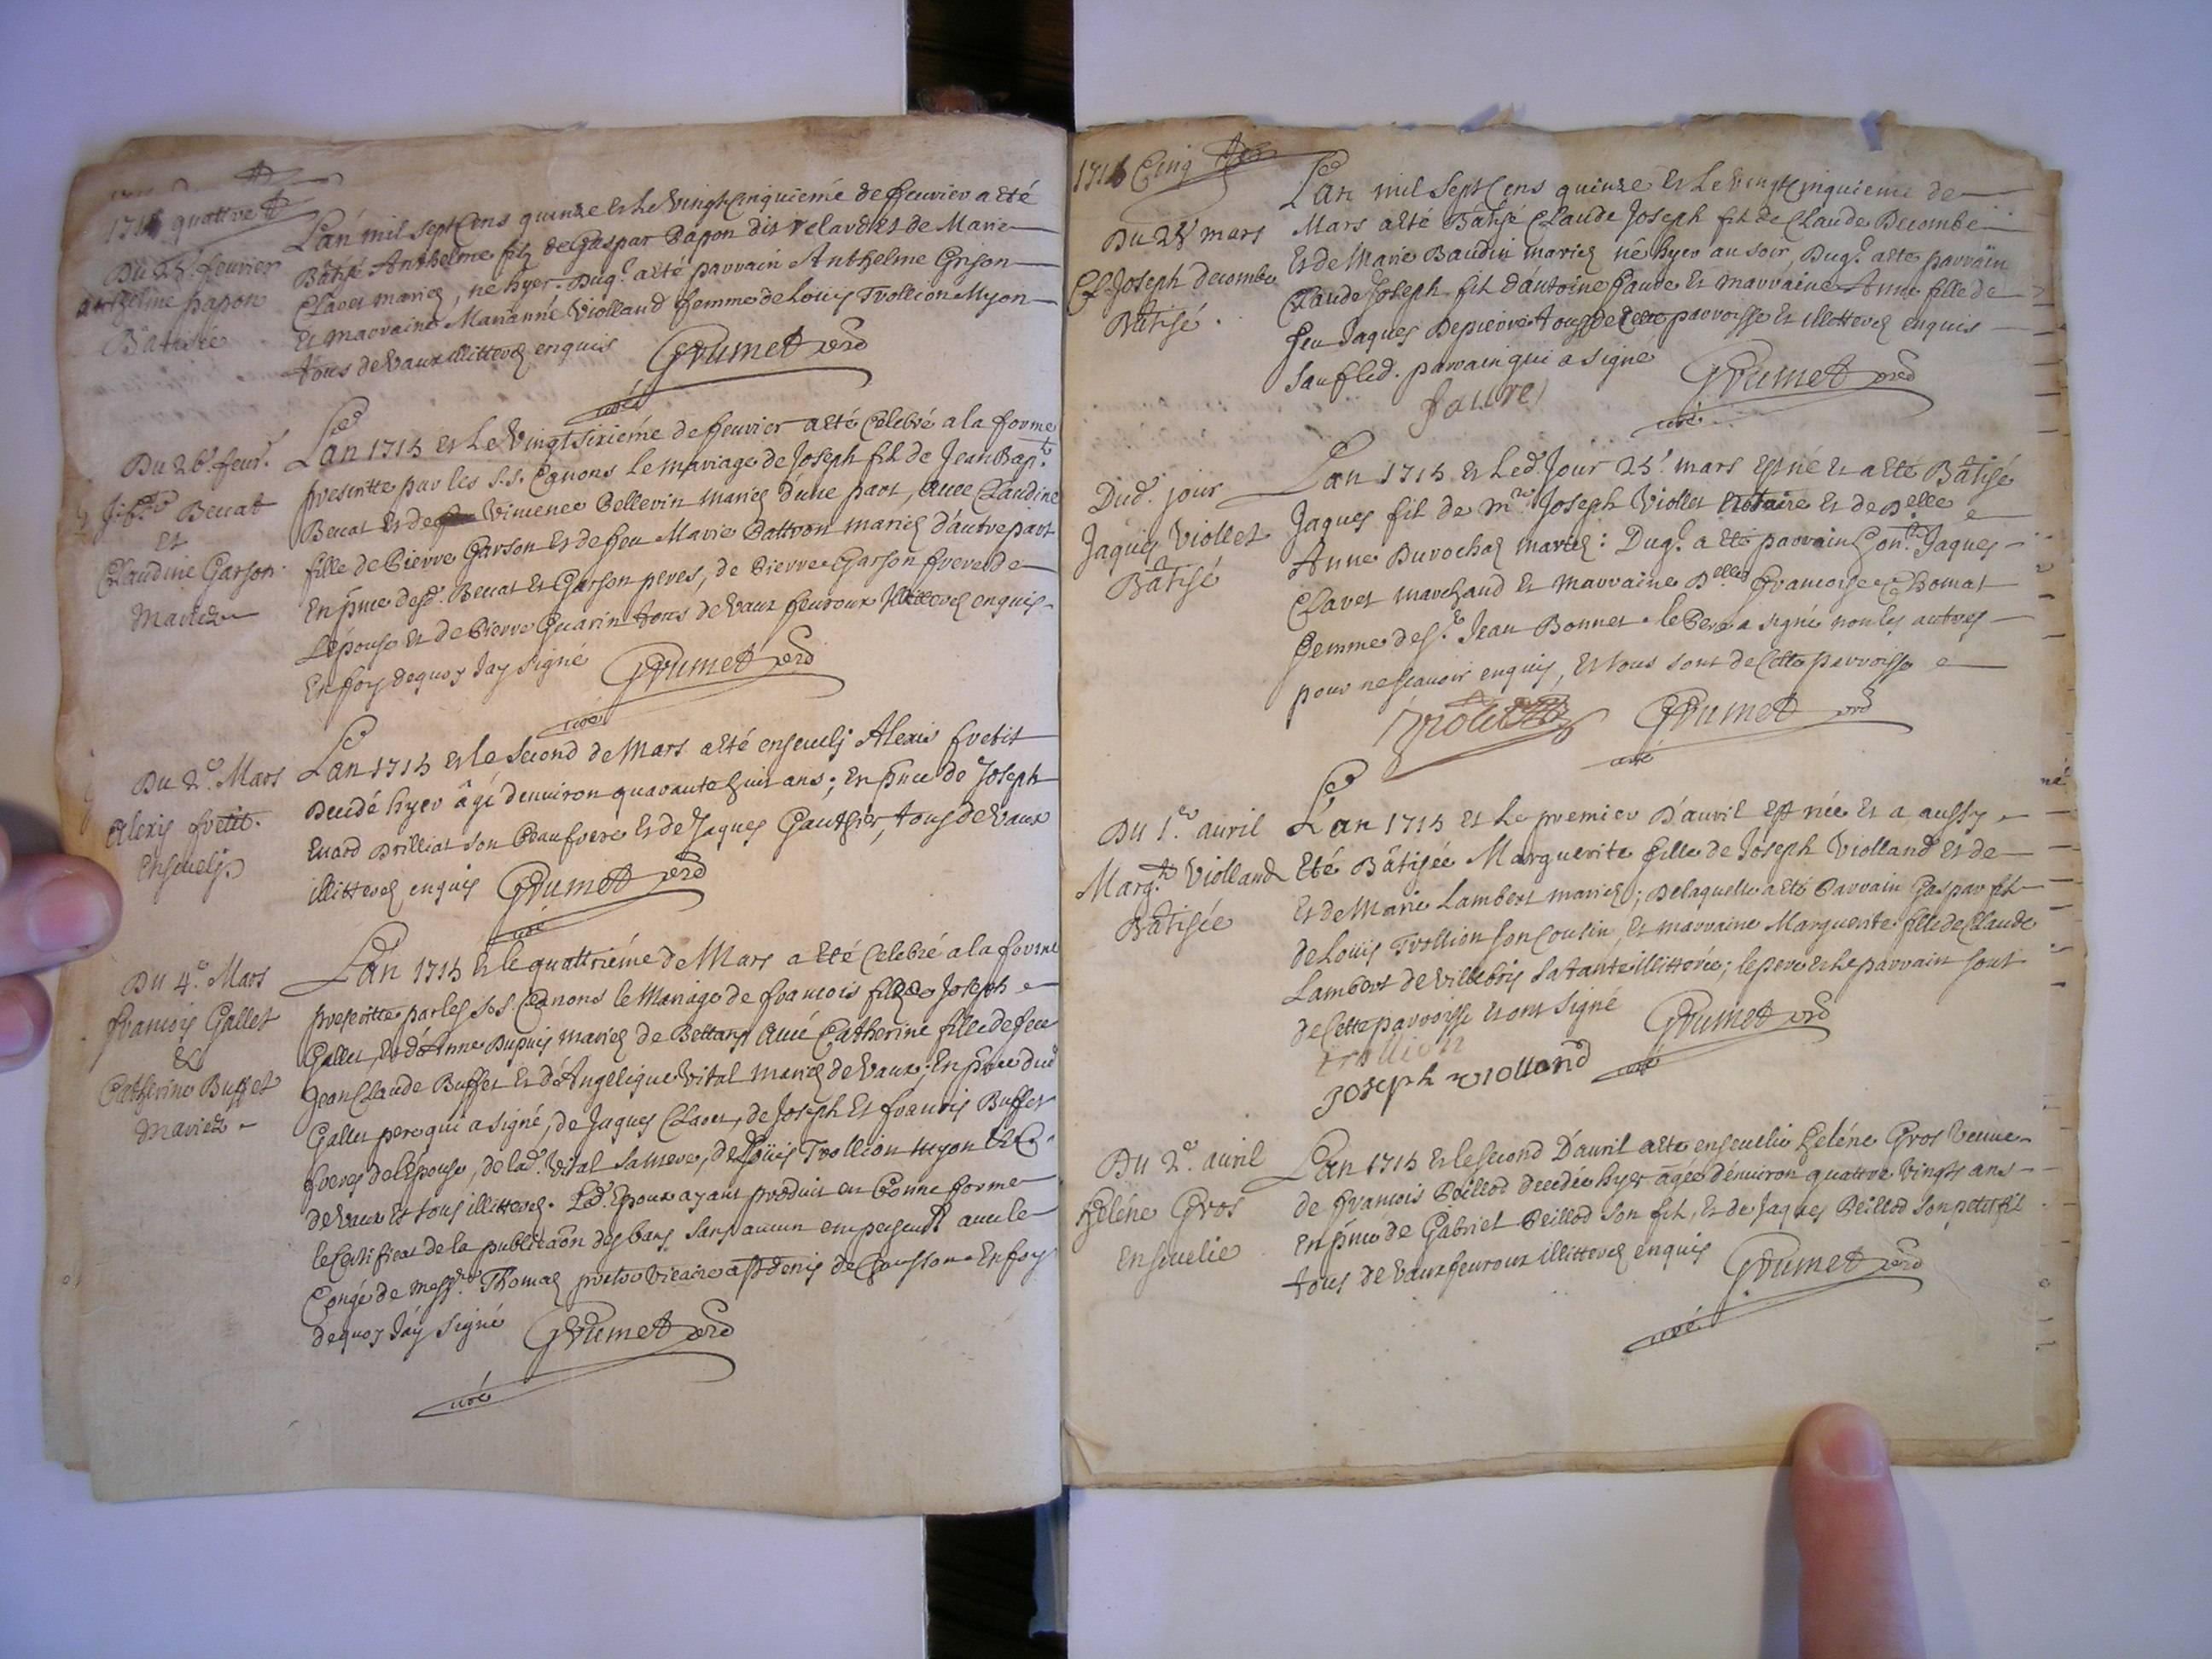 1715 quattre
Du 25e. feuvrier
anthelme papon
Bâtisé
L'an mil sept Cens quinze Et Le Vingt Cinquieme de feuvrier a eté
Bâtisé Anthelme filz de Gaspar Papon dit relav Et de Marie
Clavet mariez, né hyer. Duql. a eté parrain Anthelme Grison
Et marraine Marianne Violland femme de Louis Trollion Myon
tous de Vaux illitterez enquis Grumet
curé
Du 26e. feur.
Jph. Beccat
et
Claudine Garson
Mariez
L'an 1715 et Le Vingt sixieme de feuvrier a eté Celebré a la forme
prescritte par les S.S. Canons le mariage de Joseph fil de Jean Bapt.
Beccat Et de Vimence Bellevin mariez d'une part, avec Claudine
fille de Pierre Garson Et de feu Marie Pattron mariez d'autre part
En pnce desd. Beccat et Garson peres, de Pierre Garson frere de
L'épouse Et de Pierre Guarin tous de Vaux feuroux Illitterez enquis
En foy de quoy Jay signé Grumet
curé
Du 2e. Mars
Alexis fretit.
Enseuely
L'an 1715 et le second de Mars a eté enseuely Alexis fretit
Decedé hyer âgé d'enuiron quarante huit ans; en pnce de Joseph
Euard Brilliat son Beaufrere et de Jaques Gauthier, tous de Vaux
illitterez enquis Grumet
curé
Du 4e. Mars
francois Gallet
&
Catherine Buffet
Mariez
L'an 1715 et le quattriéme de Mars a eté Celebré a la forme
prescritte par les s.s. Canons le Mariage de francois filz de Joseph
Gallet, Et d'Anne Dupuis mariez de Bettans avec Catherine fille de feu
Jean Claude Buffet Et d'Angelique Vital mariez de Vaux; En pnce dud.
Gallet pere qui a signé, de Jaques Clavet, de Joseph Et francois Buffet
freres de l'épouse, de lad. Vital sa mere, de Loüis Trollion Myon &c.
de Vaux et tous illitterez. Led. Epoux ayant produit en bonne forme
le Certificat de la publicaõn des bans sans aucun empeschemt avec le
Congé de Messre. Thomas pretre Vicaire a St denis de Chausson En foy
de quoy Jay signé Grumet
curé
1715 Cinq
Du 25 mars
Cl. Joseph decombe
Bâtisé.
L'an mil sept Cens quinze Et Le Vingt Cinquieme de
Mars a eté Bâtisé Claude Joseph fil de Claude Decombe
Et de Marie Baudin mariez né hyer au soir, Duql. a eté parrain
Claude Joseph fil d'antoine faure Et marraine Anne fille de
feu Jaques Depierre tous de Cette parroisse Et illitterez enquis
Sauf led. parrain qui a signé Grumet
faure curé
Dud. jour
Jaques Viollet
Bâtisé
L'an 1715 et Led. Jour 25e. mars Est né Et a eté Bâtisé
Jaques fil de mre. Joseph Viollet Notaire Et de Delle
Anne Durochaz mariez: Duql. a eté parrain hont. Jaques
Clavet marchand Et marraine Delle. francoise Chomat
femme de sr. Jean Bonnet. le Pere a signé non les autres
pour ne scauoir enquis, Et tous sont de Cette parroisse
Viollet Grumet
curé
Du 1er. auril
Margte. Violland
Bâtisée
L'an 1715 et Le premier D'auril Est née Et a aussy
Eté Bâtisée Marguerite fille de Joseph Violland Et de
Et de Marie Lambert mariez; De laquelle a eté Parrain Gaspar fil
de Louis Trollion son Cousin, Et marraine Marguerite fille de Claude
Lambert de Villebois sa tante illitterée; le pere Et le parrain sont
de Cette parroisse Et ont signé Grumet
trollion curé
Joseph violland
Du 2e. auril
heléne Gros
Enseuelie
L'an 1715 et le second D'auril a eté enseuelie heléne Gros Veuue
de francois Peillod decedée hyer âgée d'enuiron quattre Vingts ans
En pnce de Gabriel Peillod son fil, Et de Jaques Peillod son petit fil
tous de Vaux feuroux illitterez enquis Grumet
curé